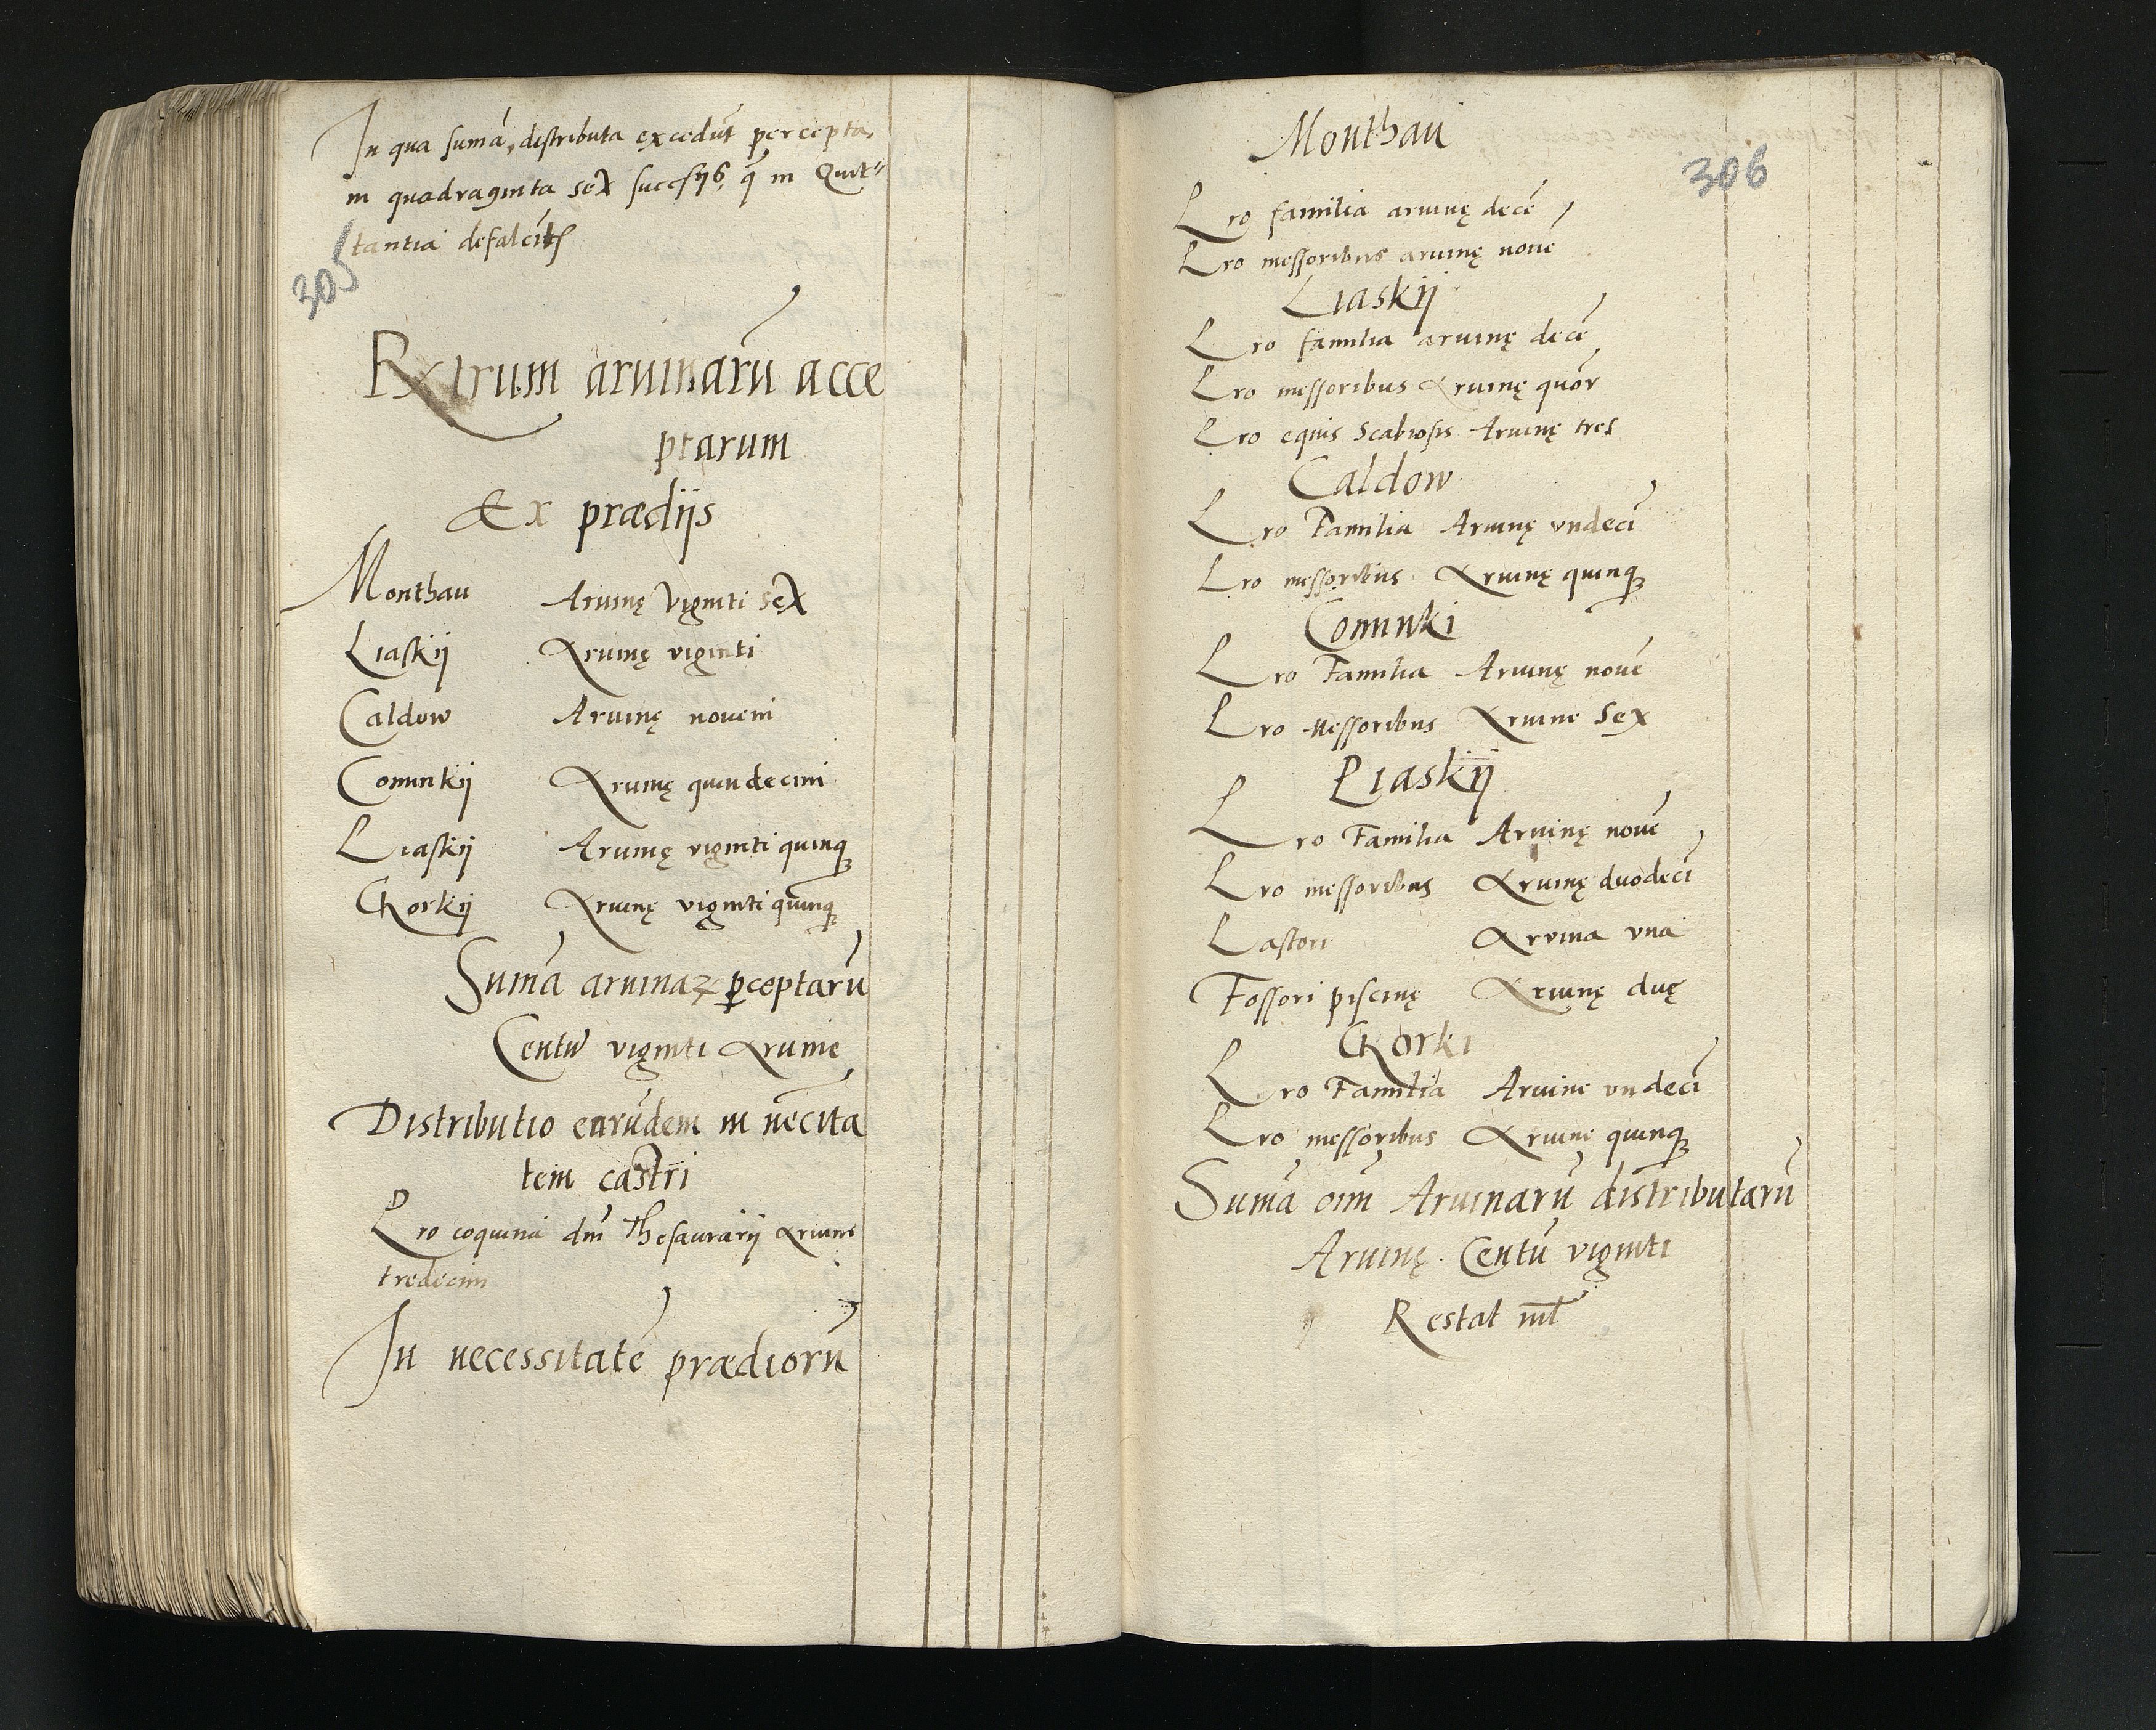 In qua sumā, distributa excedūt percepta
in quadraginta sex succsijs, q̄ in Quit„
tantia defalcātr
305
Rxtrum aruinarū acce
ptarum
Ex prædijs
Monthau Aruinę Viginti sex
Liaskij Aruinę viginti
Caldow Aruinę novem
Cominkij Aruinę quindecim
Piaskij Aruinę viginti quinq;
Gorkij Aruinę viginti quinq;
Sumā aruinaꝝ ꝑceptarū
Centū viginti Aruine
Distributio earūdem in nēcita
tem castri
Pro coquina dn̄i Thesaurarij Aruine
tredecim
In necessitatē prædiorū
Monthau
306
Pro familia aruinę decē
Pro messoribus aruinę novē
Liaskij
Pro familia aruinę decē
Pro messoribus Aruinę quōr
Pro equis Scabiosis Aruinę tres
Caldow
Pro Familia Aruinę vndecī
Pro messoribus Aruinę quinq;
Cominki
Pro Familia Aruinę novē
Pro Messoribus Aruine Sex
Piaskij
Pro Familia Aruinę novē
Pro messoribus Aruinę duodecī
Pastori Aruina vna
Fossori piscinę Aruinę duę
Gorki
Pro Familia Aruine vndecī
Pro messoribus Aruine quinq;
Sumā oīm Aruinarū distributarū
Aruinę Centū viginti
Restat nīl